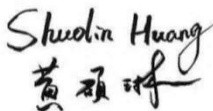 Shuolin Huang
黄硕琳